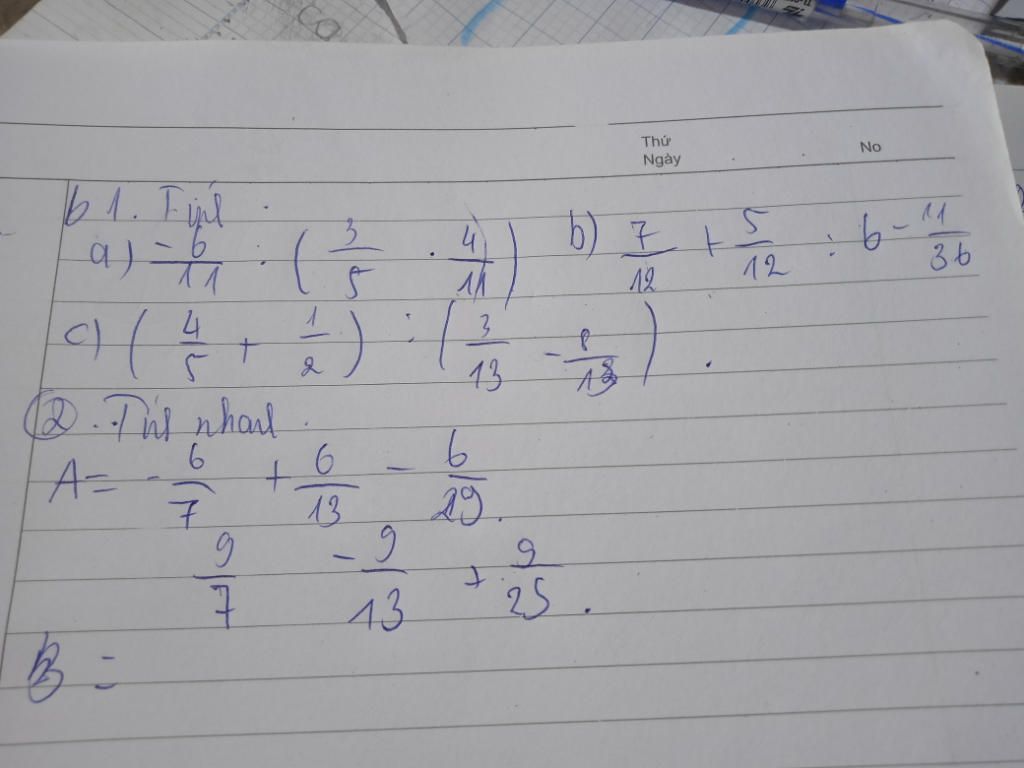 Thứ
Ngày No
b1. Tính.
a) -6/11 : (3/5 · 4/11) b) 7/12 + 5/12 : 6 - 11/36
c) (4/5 + 1/2) : (3/13 - 8/13).
2. Tính nhanh.
A = -6/7 + 6/13 - 6/29.
9/7 - 9/13 + 9/25.
B =